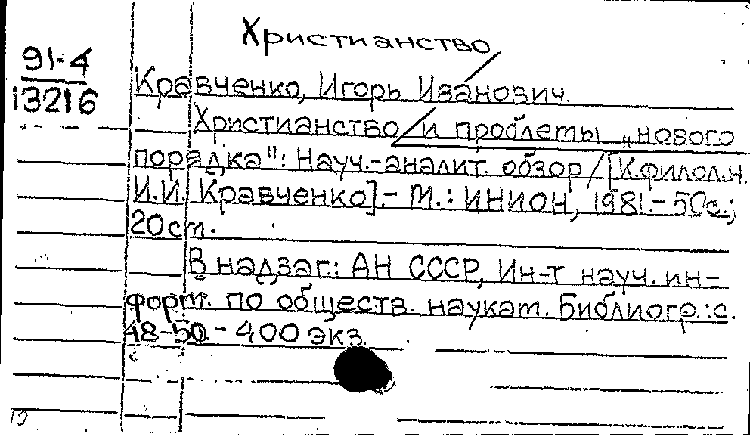 Христианство
91-4
13216
Кравченко, Игорь Иванович.
Христианство и проблемы „нового
порядка": Науч.-аналит. обзор / [К.филол.н.
И.И. Кравченко]. - М.: ИНИОН, 1981. - 50с.;
20см.
В надзаг.: АН СССР, Ин-т науч. ин-
форм. по обществ. наукам. Библиогр.: с.
48-50. - 400 экз.